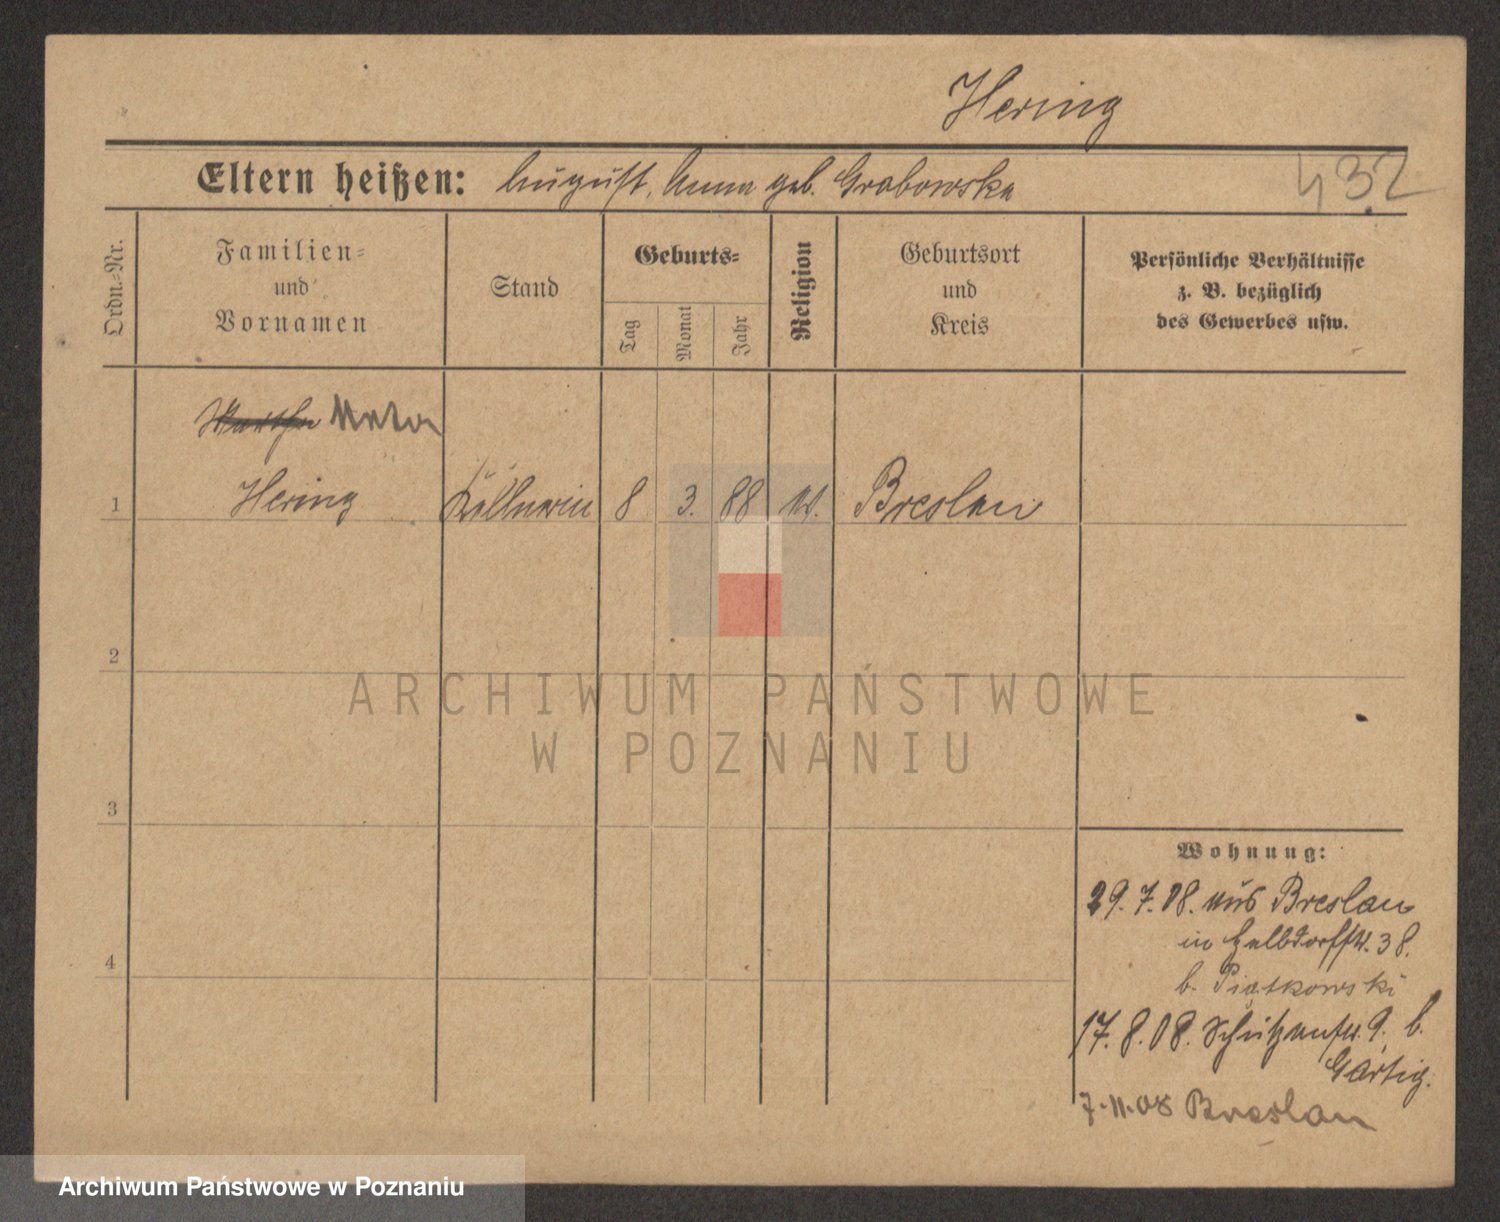 Hering
Eltern heißen: August, Anna geb. Grabowska
432
Ordn.-Nr.
Familien-
und
Vornamen
Stand
Geburts-
Tag
Monat
Jahr
Religion
Geburtsort
und
Kreis
Persönliche Verhältnisse
z. B. bezüglich
des Gewerbes usw.
Martha
1 Hering Kellnerin 8 3. 88 Breslau
2
3
4
Wohnung:
29.7.08. aus Breslau
in Halbdorfstr. 38.
b. Piątkowski
17.8.08. Schützenstr. 9. b.
Gärtig.
7.11.08 Breslau
ARCHIWUM PAŃSTWOWE
W POZNANIU
Archiwum Państwowe w Poznaniu